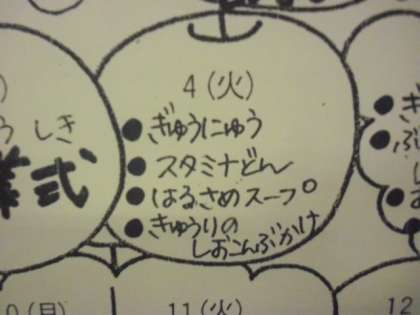 4(火)
●ぎゅうにゅう
●スタミナどん
●はるさめスープ
●きゅうりの
しおこんぶかけ
しき
式
11(火)
12